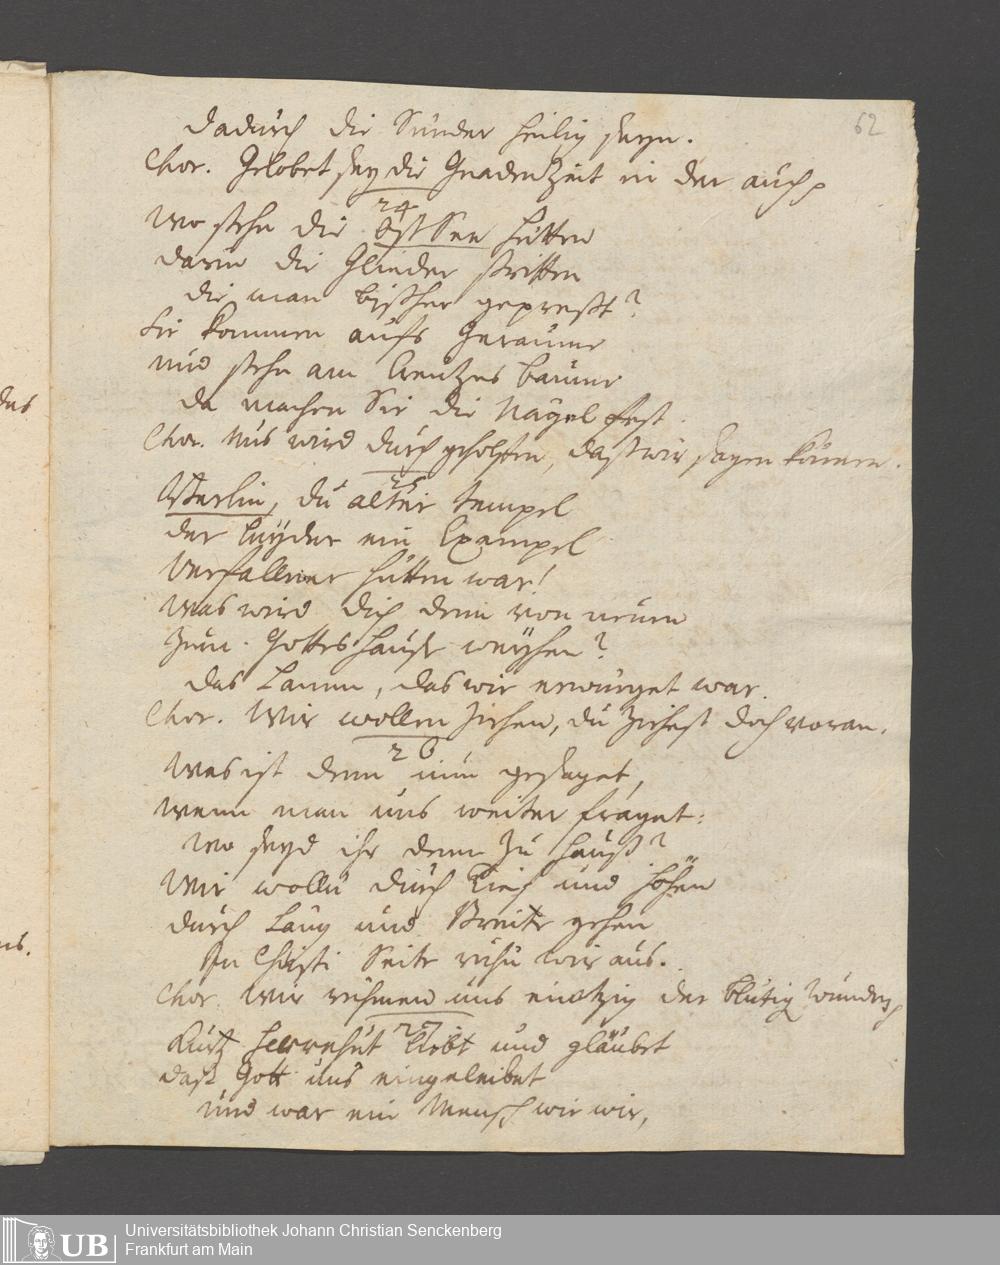 62
dadurch die Sünder heilig seyn.
Chor. Gelobet sey die Gnadenzeit in der auch
24
Wo stehn die OstSee Hütten
darin die Glieder stritten
die man bißher gepreßt?
Sie kommen aufs Geraume
und stehn am Creutzes baume
da machen Sie die Nägel fest.
Chor. Uns wird durch geholffen, daß wir sagen können.
25
Berlin, du alter tempel
der leyder ein Exempel
Verfallner Hütten war!
Was wird dich denn von neuen
zum Gottes Hause weyhen?
das Lamm, das wir erwürget war.
Chor. Wir wollen ziehen, du ziehest doch voran.
26
Was ist denn nun gesaget,
wenn man uns weiter fraget:
Wo seyd ihr denn zu Hauß?
Wir wolln durch Tief und Höhen
durch Läng und Breite gehen
In Christi Seite ruhn wir aus.
Chor. Wir rühmen uns eintzig der blutig Wunden
27
Kurtz Herrnhut liebt und gläubet
daß Gott uns eingeleibet
und war ein Mensch wie wir,
Universitätsbibliothek Johann Christian Senckenberg
Frankfurt am Main
UB